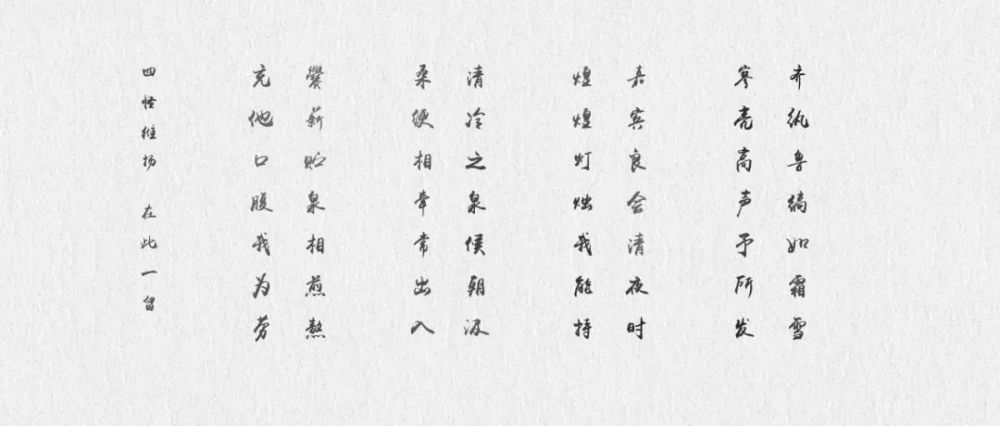 齐纨鲁缟如霜雪
寥亮高声予所发
嘉宾良会清夜时
煌煌灯烛我能持
清冷之泉候朝汲
柔绠相牵常出入
爨薪贮泉相煎熬
充他口腹我为劳
四怪维扬 在此一留